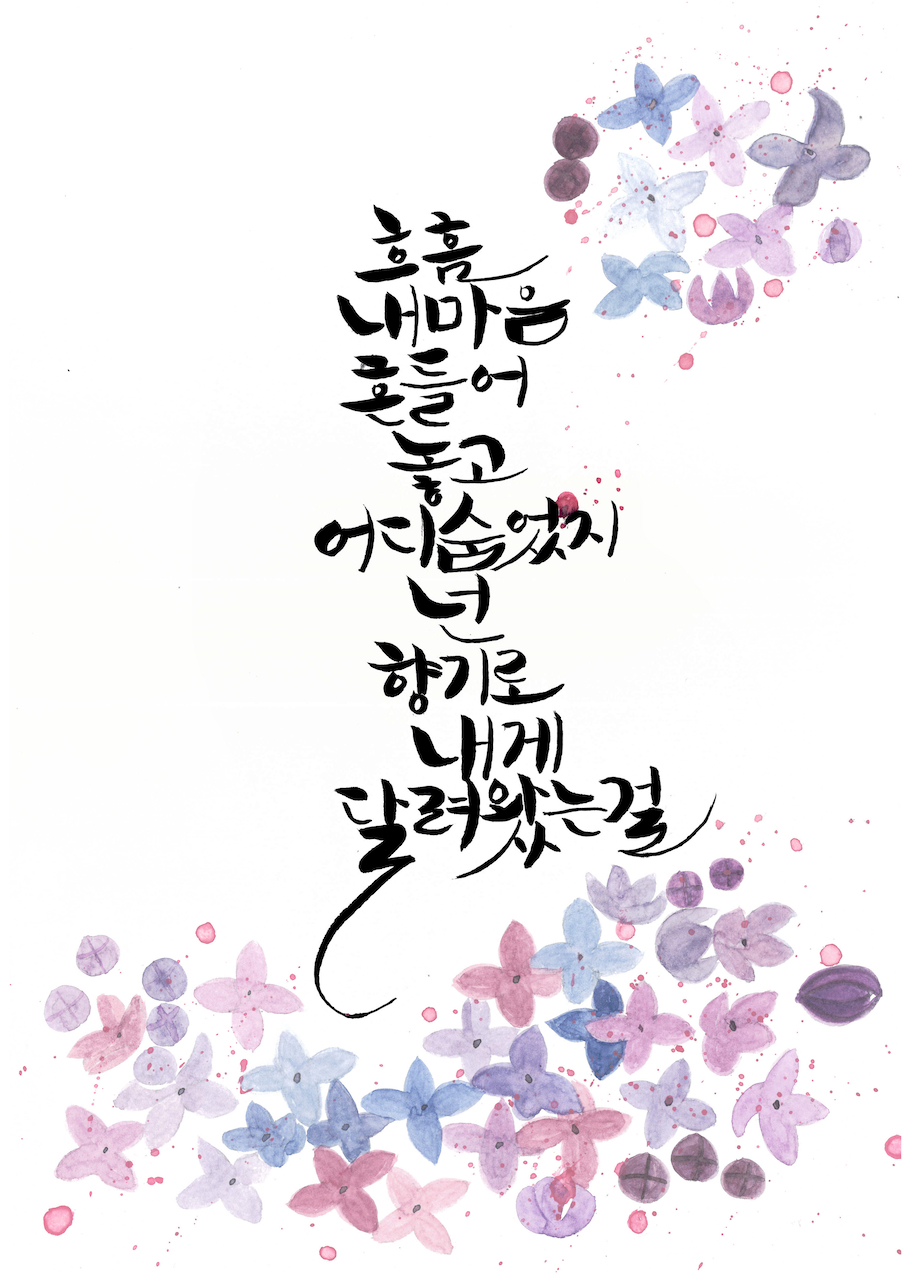 흐흠
내마음
흔들어
놓고
어디숨었지
넌
향기로
내게
달려왔는걸